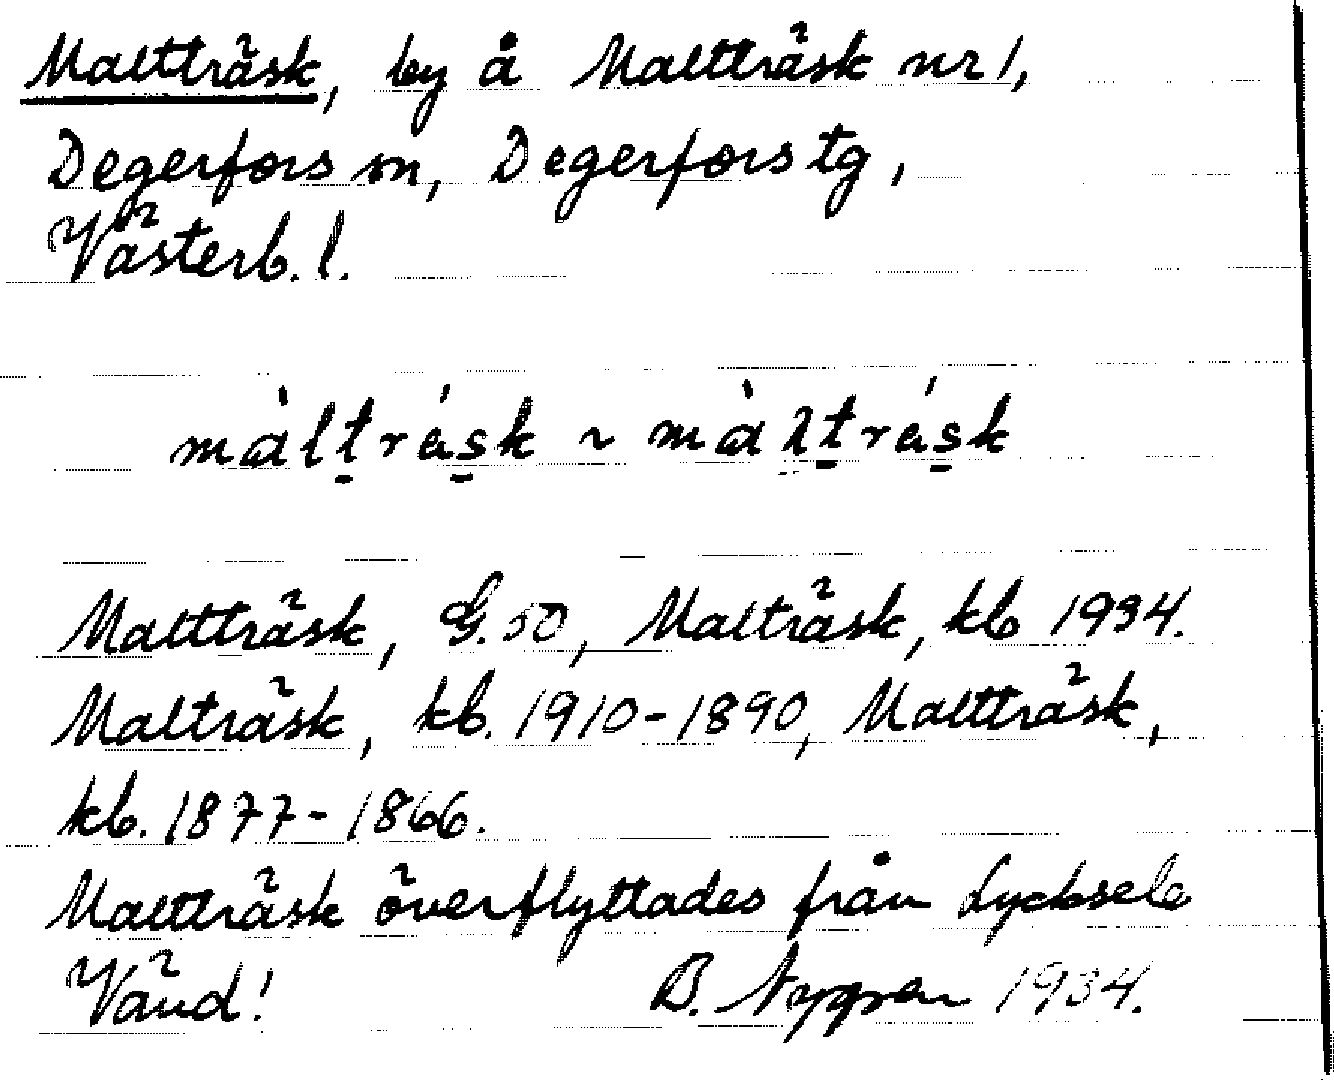 Maltträsk, by å Maltträsk nr 1,
Degerfors sn, Degerfors tg,
Västerb. l.
màlt̠rás̠k ~ màlt̠rás̠k
Maltträsk, G. 50, Malträsk, kb 1934.
Malträsk, kb. 1910-1890, Maltträsk,
kb. 1877-1866.
Maltträsk överflyttades från Lycksele
Vänd! B. Nygren 1934.